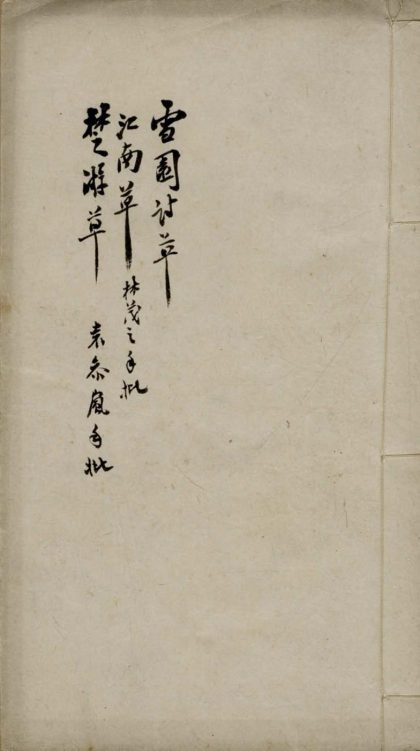 雪園詩草
江南草 林茂之手批
楚游草 袁参嵐手批